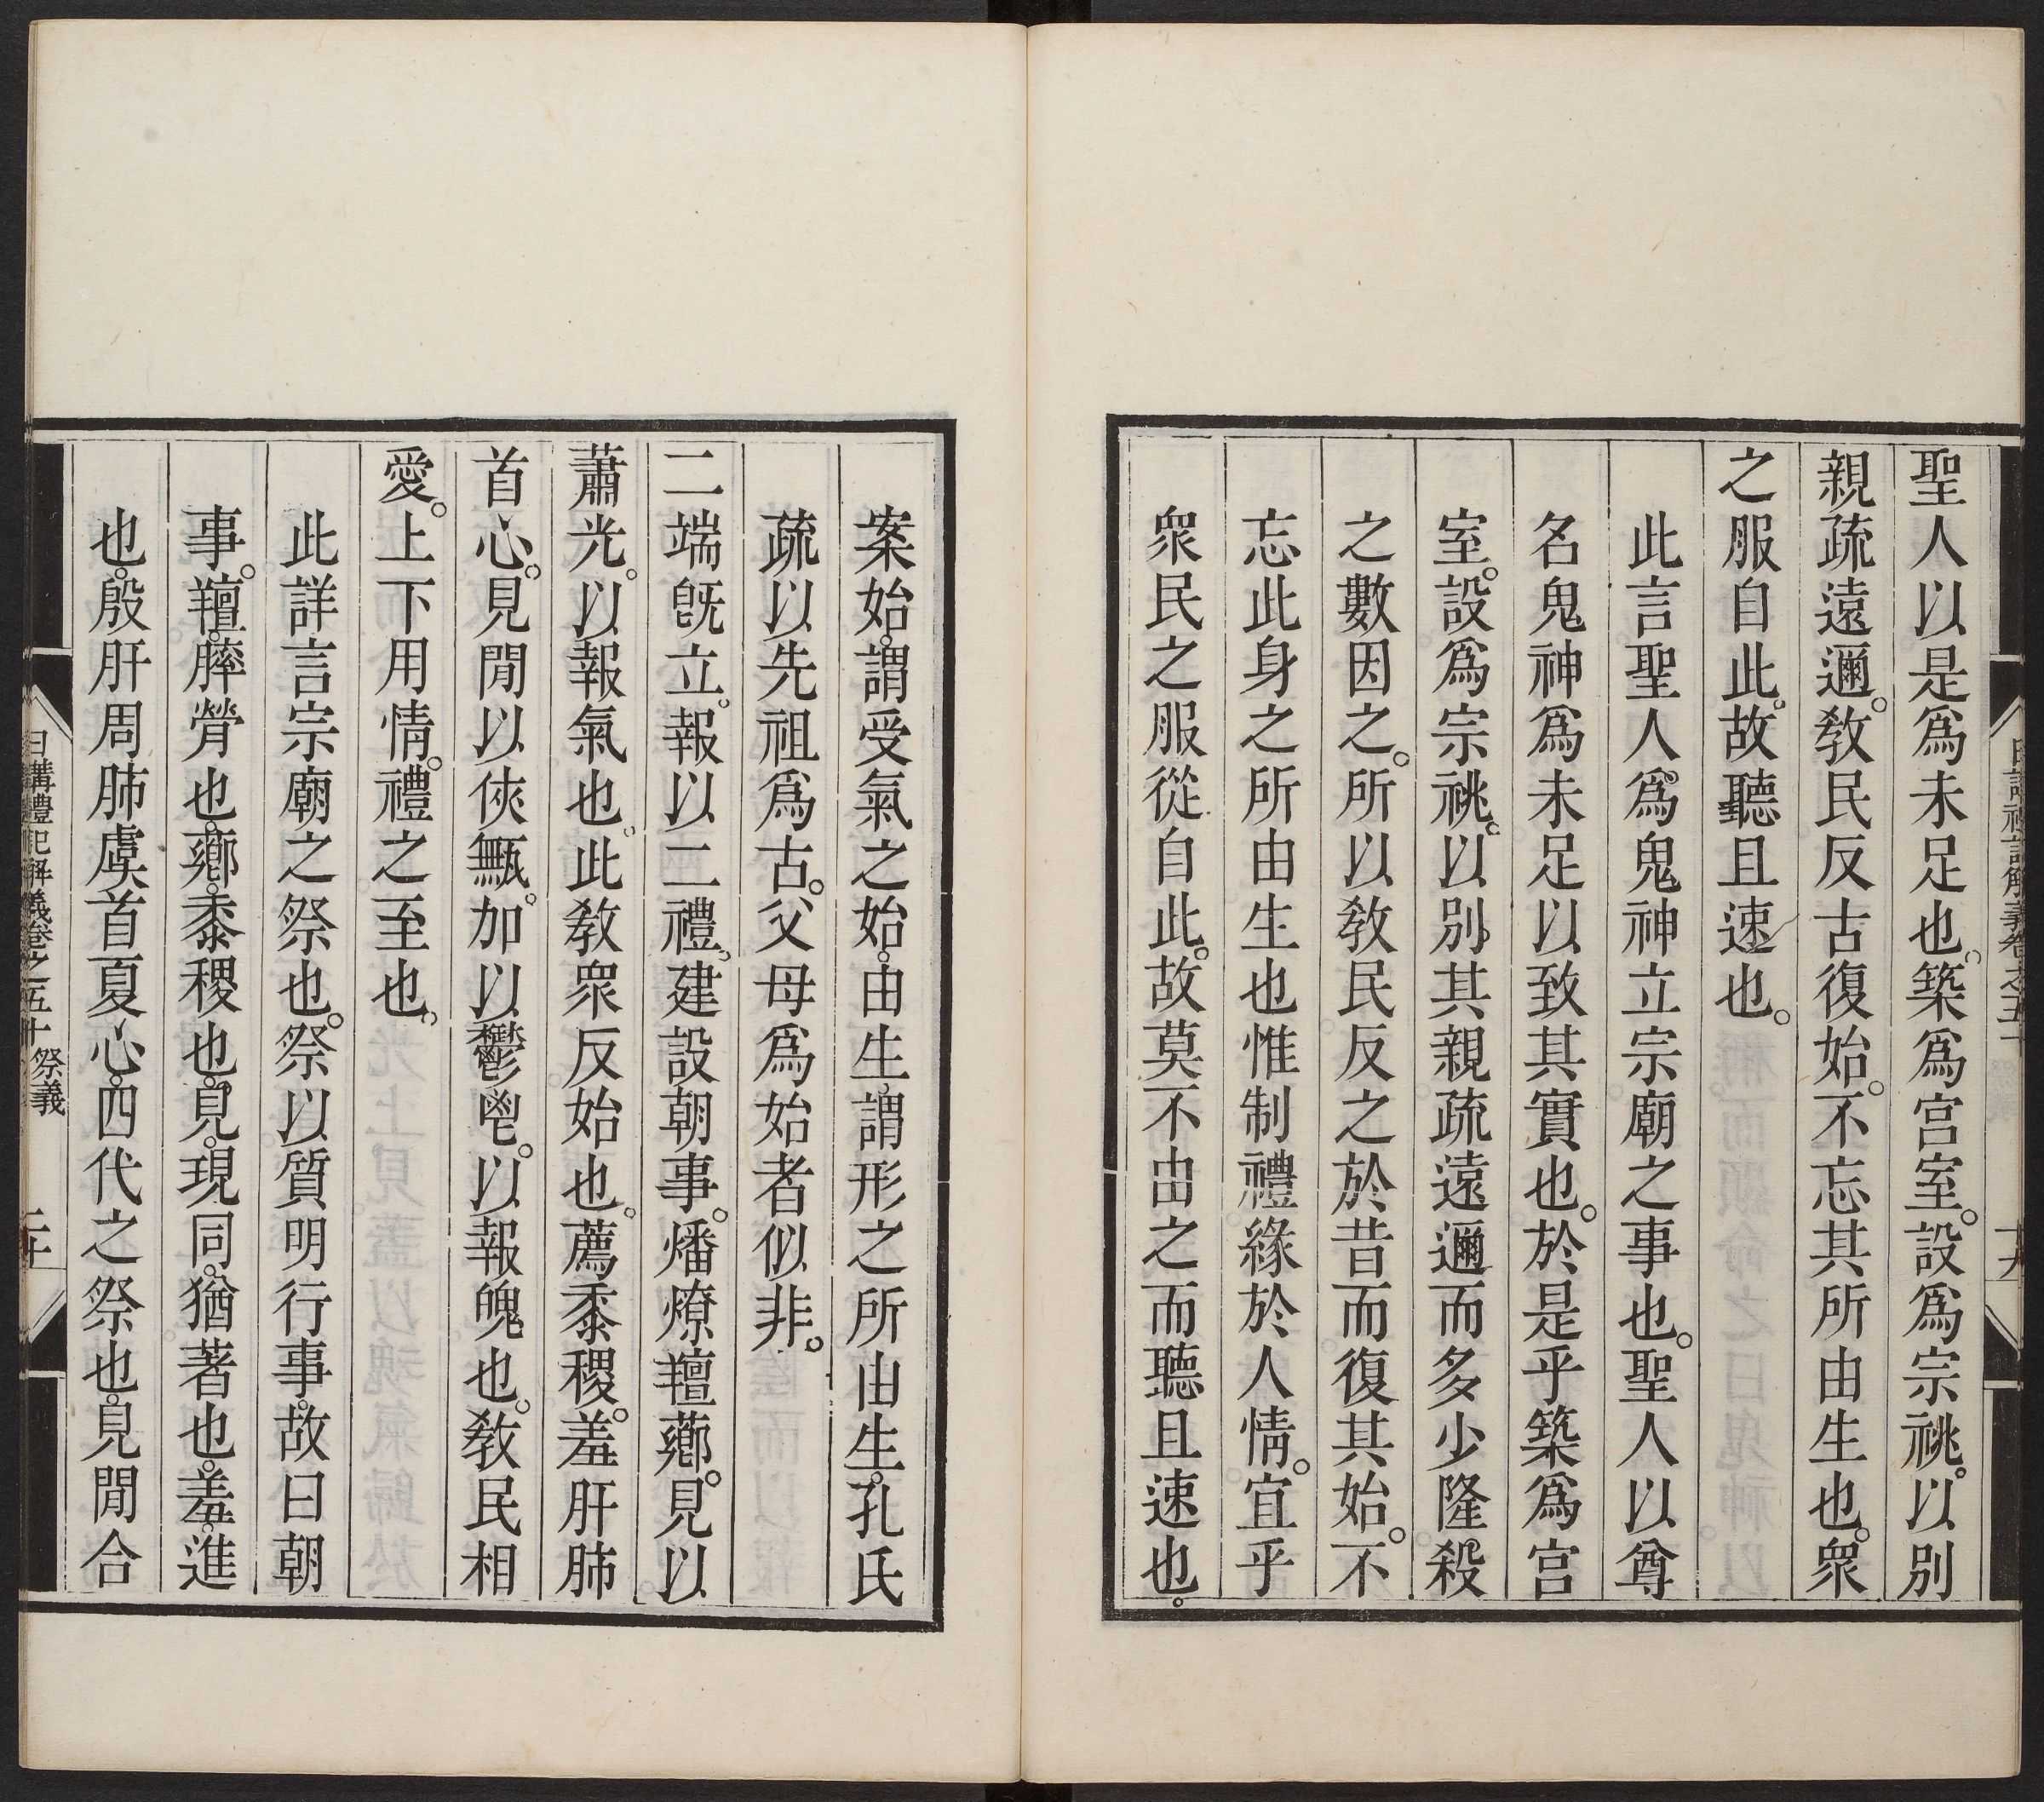 聖人以是爲未足也。築爲宮室。設爲宗祧。以別
親疏遠邇。教民反古復始。不忘其所由生也。衆
之服自此。故聽且速也。
此言聖人爲鬼神立宗廟之事也。聖人以尊
名鬼神爲未足以致其實也。於是乎築爲宮
室。設爲宗祧。以別其親疏遠邇而多少隆殺
之數因之。所以教民反之於昔而復其始。不
忘此身之所由生也惟制禮緣於人情。宜乎
衆民之服從自此。故莫不由之而聽且速也。
案始。謂受氣之始。由生。謂形之所由生。孔氏
疏以先祖爲古。父母爲始者似非。
二端旣立。報以二禮。建設朝事。燔燎羶薌。見以
蕭光。以報氣也。此教衆反始也。薦黍稷。羞肝肺
首心。見閒以俠甒。加以鬱鬯。以報魄也。教民相
愛。上下用情。禮之至也。
此詳言宗廟之祭也。祭以質明行事。故曰朝
事。羶。膟膋也。薌。黍稷也。見。現同。猶著也。羞。進
也。殷肝周肺虞首夏心。四代之祭也。見閒合
日講禮記解義卷之五十 祭義 二十